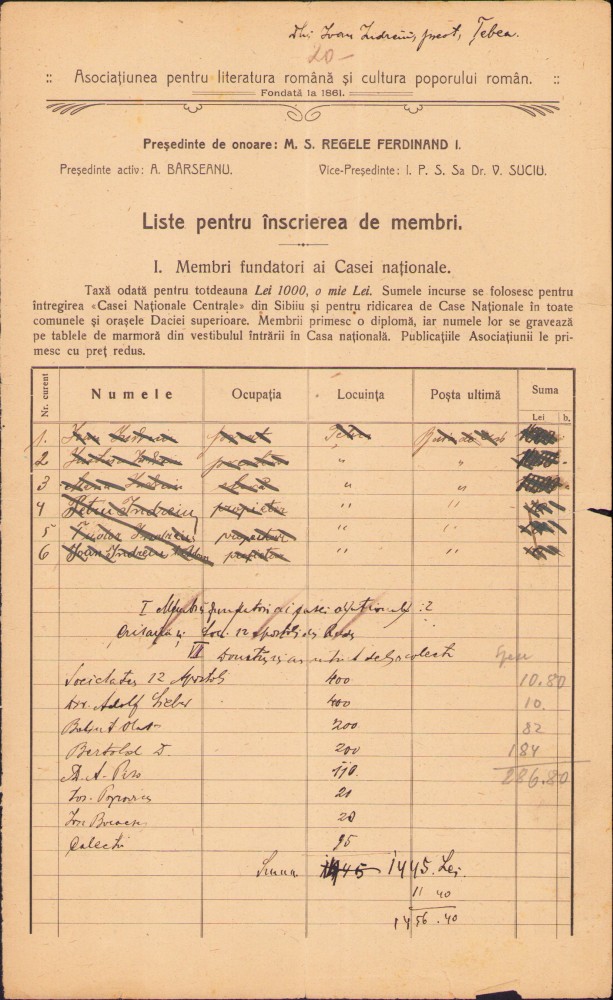 Dlui Ioan Indreiu, preot, Țebea.
20-
:: Asociațiunea pentru literatura română și cultura poporului român. ::
Fondată la 1861.
Președinte de onoare: M. S. REGELE FERDINAND I.
Președinte activ: A. BÂRSEANU. Vice-Președinte: I. P. S. Sa Dr. V. SUCIU.
Liste pentru înscrierea de membri.
I. Membri fundatori ai Casei naționale.
Taxă odată pentru totdeauna Lei 1000, o mie Lei. Sumele incurse se folosesc pentru
întregirea «Casei Naționale Centrale» din Sibiiu și pentru ridicarea de Case Naționale în toate
comunele și orașele Daciei superioare. Membrii primesc o diplomă, iar numele lor se gravează
pe tablele de marmoră din vestibulul întrării în Casa națională. Publicațiile Asociațiunii le pri-
mesc cu preț redus.
Nr. curent Numele Ocupația Locuința Poșta ultimă Suma
Lei b.
1. Ioan Indreiu preot Țebea
2 " "
3 " "
4 Petru Indreiu propietar " "
5 Indreiu propietar " "
6 Ioan Indreiu propietar " "
I Membri fundatori ai casei naționale :2
Soc. 12 Apostoli
III
Societatea 12 Apostoli 400 10.80
Adolf 400 10.
200 82
Bertold D. 200 184
A. 110. 286.80
Ios. Popovici 21
Ion 20
Colectă 95
Suma 1445 1445. Lei
11 40
1456.40